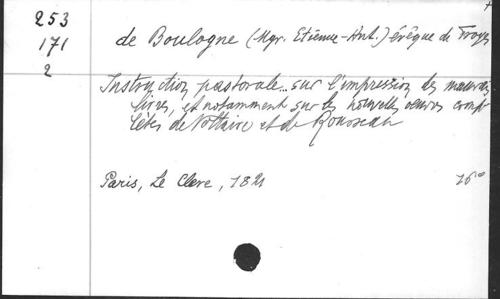 253
171
2
de Boulogne (Mgr. Etienne-Ant.) évêque de Troyes
Instruction pastorale.. sur l'impression des mauvais
livres, et notamment sur les nouvelles œuvres comp-
lètes de Voltaire et de Rousseau
Paris, Le Clere, 1821